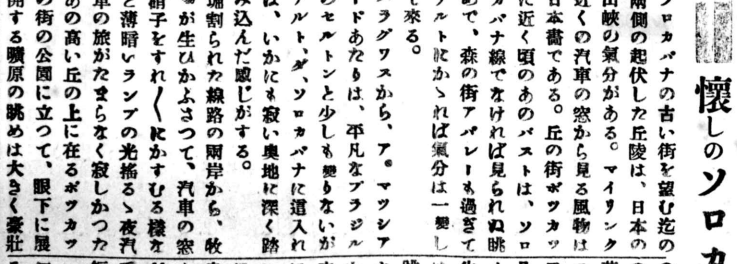 懐しのソロカ
ソロカバナの古い街を望む迄の
両側の起伏した丘陵は、日本の
山峡の氣分がある。マイリンク
近くの汽車の窓から見る風物は
日本畫である。丘の街ボツカツ
に近く頃のあのパストは、ソロ
カバナ線でなければ見られぬ眺
めで、森の街アバレーも過ぎて
ルトにかゝれば氣分は一變し
て來る。
ラグワスから、ア。マツシア
ードあたりは、平凡なブラジル
のセルトンと少しも變りないが
アルト、ダ、ソロカバナに這入れ
ば、いかにも寂い奥地に深く踏
み込んだ感じがする。
堀割られた線路の兩岸から、牧
場が生ひかぶさつて、汽車の窓
硝子をすれ〱にかすむる様を
と薄暗いランプの光搖るゝ夜汽
車の旅がたまらなく寂しかつた
あの高い丘の上に在るボツカツ
の街の公園に立つて、眼下に展
開する曠原の眺めは大きく豪壯